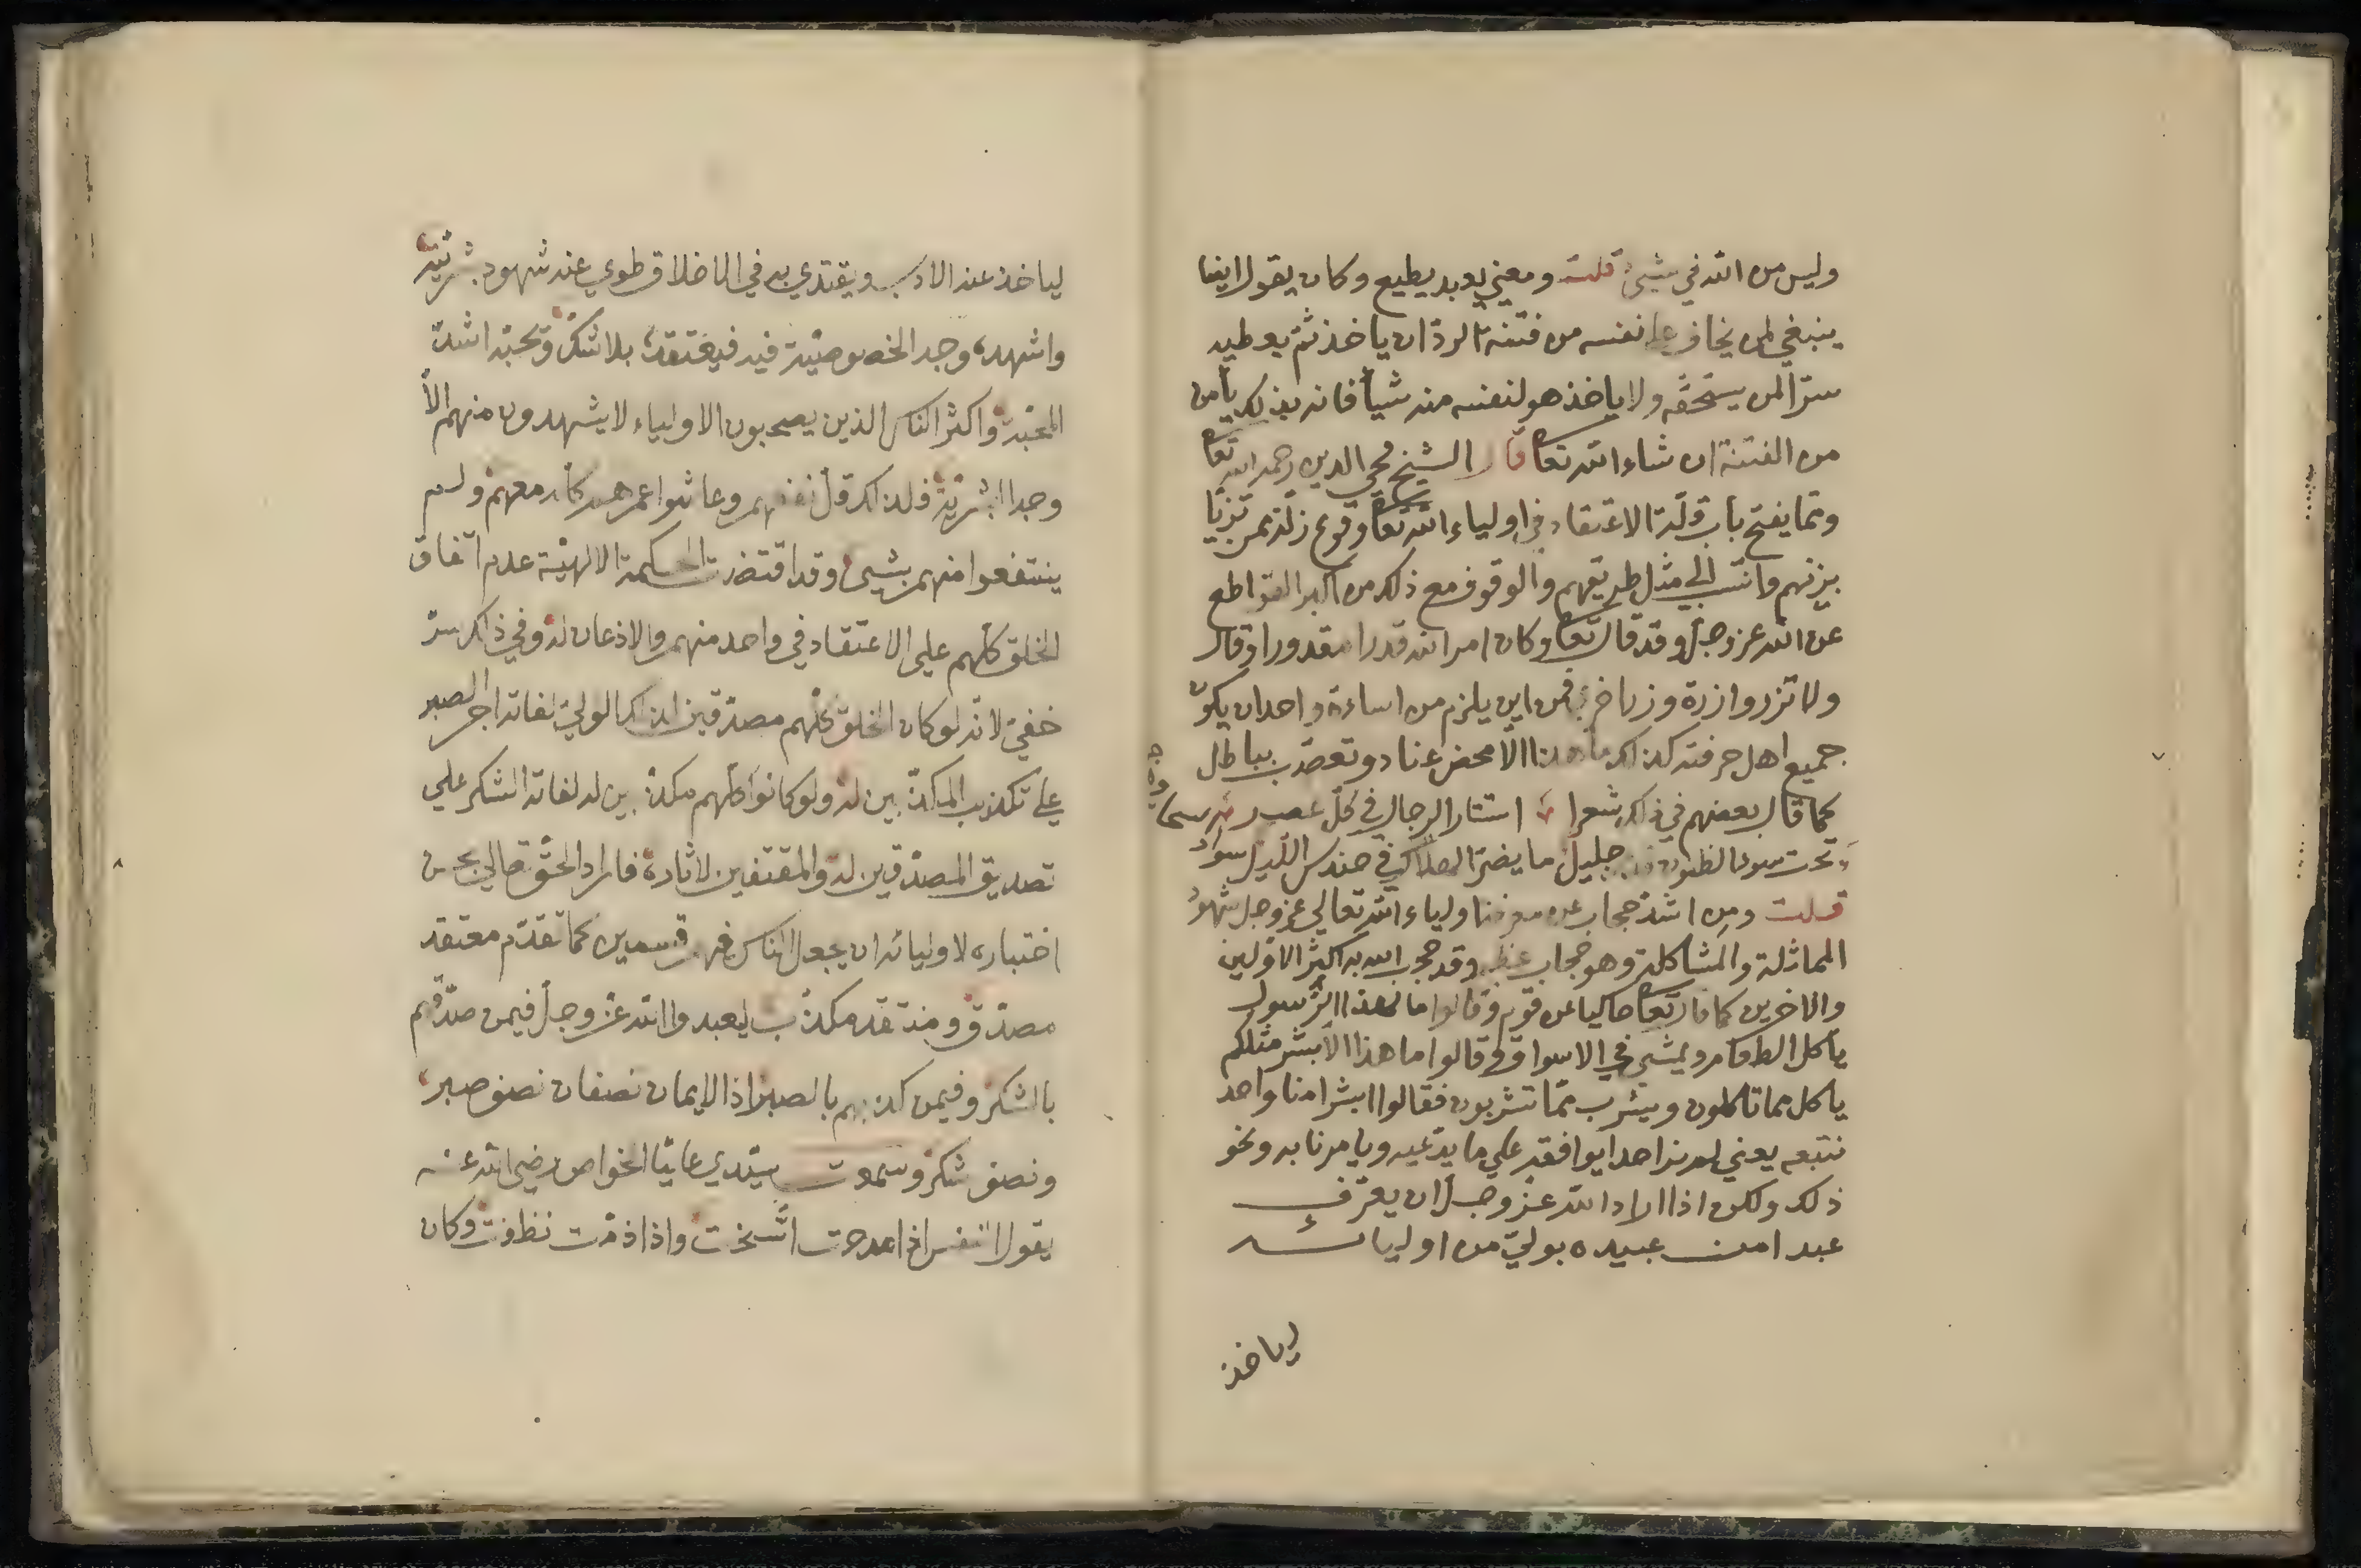 وليس من الله في شيئ قلت ومعني يعبد يطيع وكان يقول ايضا
ينبغي لمن يخاف علي نفسه من فتنة الرد ان ياخذ ثم يعطيه
سترا لمن يستحقه ولا ياخذ هو لنفسه منه شيأ فانه بذلك يأمن
من الفتنة ان شاء الله تعا قال الشيخ محي الدين رحمه الله تعا
ومما يفتح باب قلة الاعتقاد في اولياء الله تعا وقوع زلة ممن تزيا
بزيهم وانتسب الي مثل طريقهم والوقوف مع ذلك من اكبر القواطع
عن الله عز وجل وقد قال تعا وكان امر الله قدرا مقدورا وقال
ولا تزر وازرة وزر اخري فمن اين يلزم من اساءة واحد ان يكون
جميع اهل حرفته كذلك ما هذا الا محض عناد وتعصب بباطل
كما قال بعضهم في ذلك شعرا استتار الرجال في كل عصر
تحت سوء الظنون قدر جليل ما يضر الهلال في حندس الليل سواد
قلت ومن اشد حجاب عن معرفة اولياء الله تعالي عز وجل شهود
المماثلة والمشاكلة وهو حجاب عظيم وقد حجب الله به اكثر الاولين
والاخرين كما قال تعا حاكيا عن قوم وقالوا مال هذا الرسول
يأكل الطعام ويمشي في الاسواق وقالوا ما هذا الا بشر مثلكم
ياكل مما تاكلون ويشرب مما تشربون فقالوا ابشرا منا واحد
نتبعه يعني لم نر احدا يوافقه علي ما يدعيه ويامرنا به ونحو
ذلك ولكن اذا اراد الله عز وجل ان يعرف
عبدا من عبيده بولي من اوليائه
لياخذ
لياخذ عنه الادب ويقتدي به في الاخلاق طوي عنه شهود بشريته
واشهده وجه الخصوصية فيه فيعتقده بلا شك وتحبه اشد
المحبة واكثر الناس الذين يصحبون الاولياء لا يشهدون منهم الا
وجه البشرية فلذلك قل نفعهم وعاشوا عمرهم كله معهم ولم
ينتفعوا منهم بشيئ وقد اقتضت الحكمة الالهية عدم اتفاق
الخلق كلهم علي الاعتقاد في واحد منهم والاذعان له وفي ذلك سر
خفي لانه لو كان الخلق كلهم مصدقين لذلك الولي لفاته اجر الصبر
علي تكذيب المكذبين له ولو كانوا كلهم مكذبين له لفاته الشكر علي
تصديق المصدقين له والمقتفين لاثاره فاراد الحق تعالي بحسن
اختباره لاوليائه ان يجعل الناس فيهم قسمين كما تقدم معتقد
مصدق ومنتقد مكذب ليعبدوا الله عز وجل فيمن صدقهم
بالشكر وفيمن كذبهم بالصبر اذ الايمان نصفان نصف صبر
ونصف شكر وسمعت سيدي عليا الخواص رضي الله عنه
يقول النفس اذا مدحت اتسخت واذا ذمت نظفت وكان